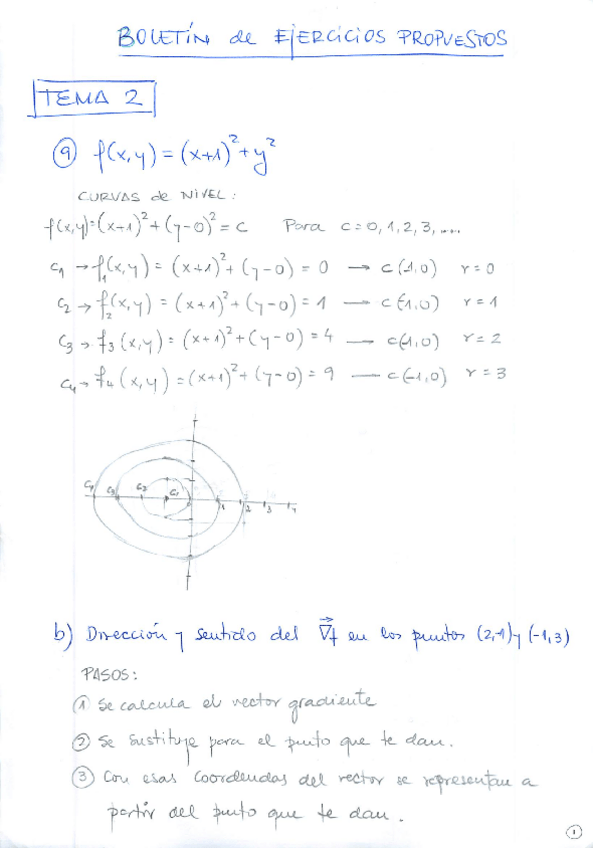 BOLETÍN de EJERCICIOS PROPUESTOS
TEMA 2
9 f(x,y) = (x+1)² + y²
CURVAS de NIVEL:
f(x,y) = (x+1)² + (y-0)² = c Para c = 0, 1, 2, 3, ....
C₁ → f₁(x,y) = (x+1)² + (y-0) = 0 → c(-1,0) r = 0
C₂ → f₂(x,y) = (x+1)² + (y-0) = 1 → c(-1,0) r = 1
C₃ → f₃(x,y) = (x+1)² + (y-0) = 4 — c(-1,0) r = 2
C₄ → f₄(x,y) = (x+1)² + (y-0) = 9 — c(-1,0) r = 3
C₄ C₃ C₂ C₁ 1 2 3 4
b) Dirección y sentido del ∇f en los puntos (2,-1) y (-1,3)
PASOS:
1 Se calcula el vector gradiente
2 Se sustituye para el punto que te dan.
3 Con esas coordendas del vector se representan a
partir del punto que te dan.
1